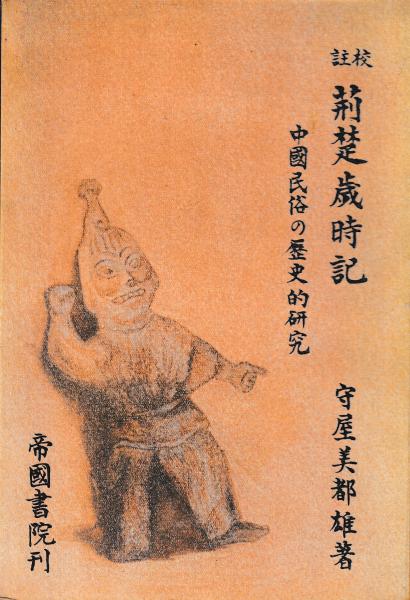 校註
荊楚歲時記
中國民俗の歷史的研究
守屋美都雄著
帝國書院刊